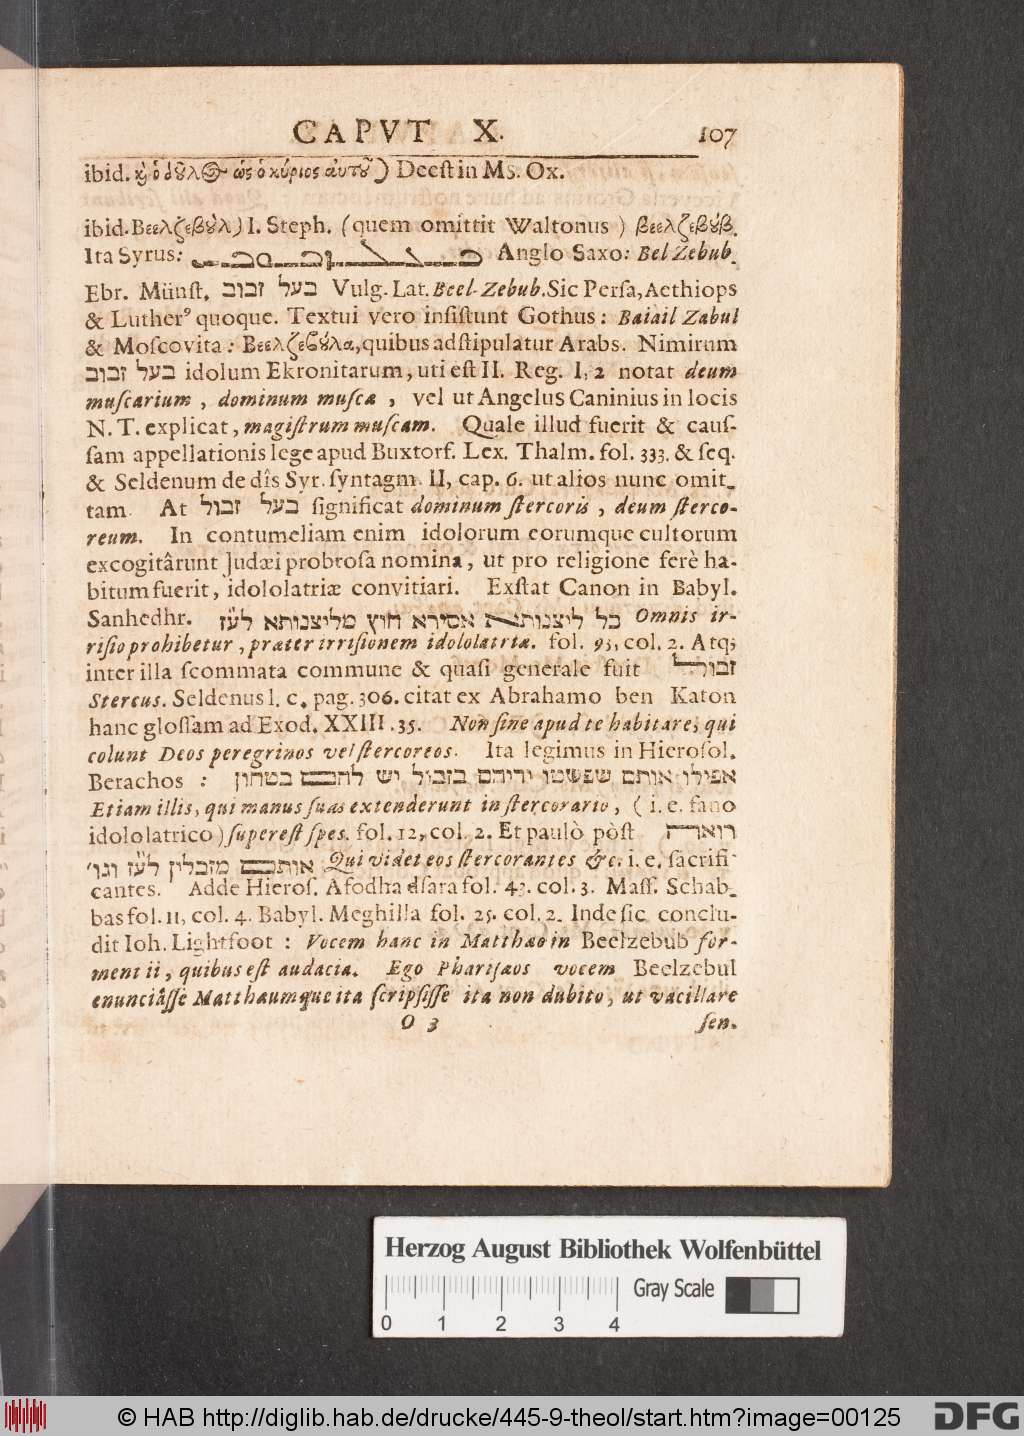 CAPVT X. 107
ibid. ϗ ὁ δȣ̃λος ὡς ὁ κύριος αυτȣ̃) Deest in Ms. Ox.
ibid. Βεελζεβȣ̀λ) I. Steph. (quem omittit Waltonus) βεελζεβȣ́β.
Ita Syrus: Anglo Saxo: Bel Zebub.
Ebr. Münſt. בעל זבוב Vulg. Lat. Beel-Zebub. Sic Perſa, Aethiops
& Lutherꝰ quoque. Textui vero inſiſtunt Gothus: Baiail Zabul
& Moſcovita: Βεελζεβȣ́λα, quibus adſtipulatur Arabs. Nimirum
בעל זבוב idolum Ekronitarum, uti eſt II. Reg. I, 2 notat deum
muſcarium, dominum muſcæ, vel ut Angelus Caninius in locis
N. T. explicat, magiſtrum muſcam. Quale illud fuerit & cauſ-
ſam appellationis lege apud Buxtorf. Lex. Thalm. fol. 333. & ſeq.
& Seldenum de dîs Syr. ſyntagm. II, cap. 6. ut alios nunc omit-
tam. At בעל זבול ſignificat dominum ſtercoris, deum ſterco-
reum. In contumeliam enim idolorum eorumque cultorum
excogitârunt Judæi probroſa nomina, ut pro religione ferè ha-
bitum fuerit, idololatriæ convitiari. Exſtat Canon in Babyl.
Sanhedhr. כל ליצנותא אסירא חוץ מליצנותא לע״ז Omnis ir-
riſio prohibetur, præter irriſionem idololatriæ. fol. 93, col. 2. Atq;
inter illa ſcommata commune & quaſi generale fuit זבול
Stercus. Seldenus l. c. pag. 306. citat ex Abrahamo ben Katon
hanc gloſſam ad Exod. XXIII. 35. Non ſine apud te habitare, qui
colunt Deos peregrinos vel ſtercoreos. Ita legimus in Hieroſol.
Berachos : אפילו אותם שפשטו ידיהם בזבול יש להם בטחון
Etiam illis, qui manus ſuas extenderunt in ſtercorario, (i. e. fano
idololatrico) ſupereſt ſpes. fol. 12, col. 2. Et paulò pòſt רואה
אותם מזבלין לע״ז וגו׳ Qui videt eos ſtercorantes &c. i. e. ſacrifi-
cantes. Adde Hieroſ. Afodha dſara fol. 43. col. 3. Maſſ. Schab-
bas fol. 11, col. 4. Babyl. Meghilla fol. 25. col. 2. Inde ſic conclu-
dit Ioh. Lightfoot : Vocem hanc in Matthæo in Beelzebub for-
ment ii, quibus eſt audacia. Ego Phariſæos vocem Beelzebul
enunciâſſe Matthæumque ita ſcripſiſſe ita non dubito, ut vacillare
O 3 ſen-
Herzog August Bibliothek Wolfenbüttel
Gray Scale
0 1 2 3 4
© HAB http://diglib.hab.de/drucke/445-9-theol/start.htm?image=00125
DFG